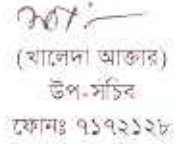 (খালেদা আক্তার)
উপ-সচিব
ফোনঃ ৭১৭২১২৮